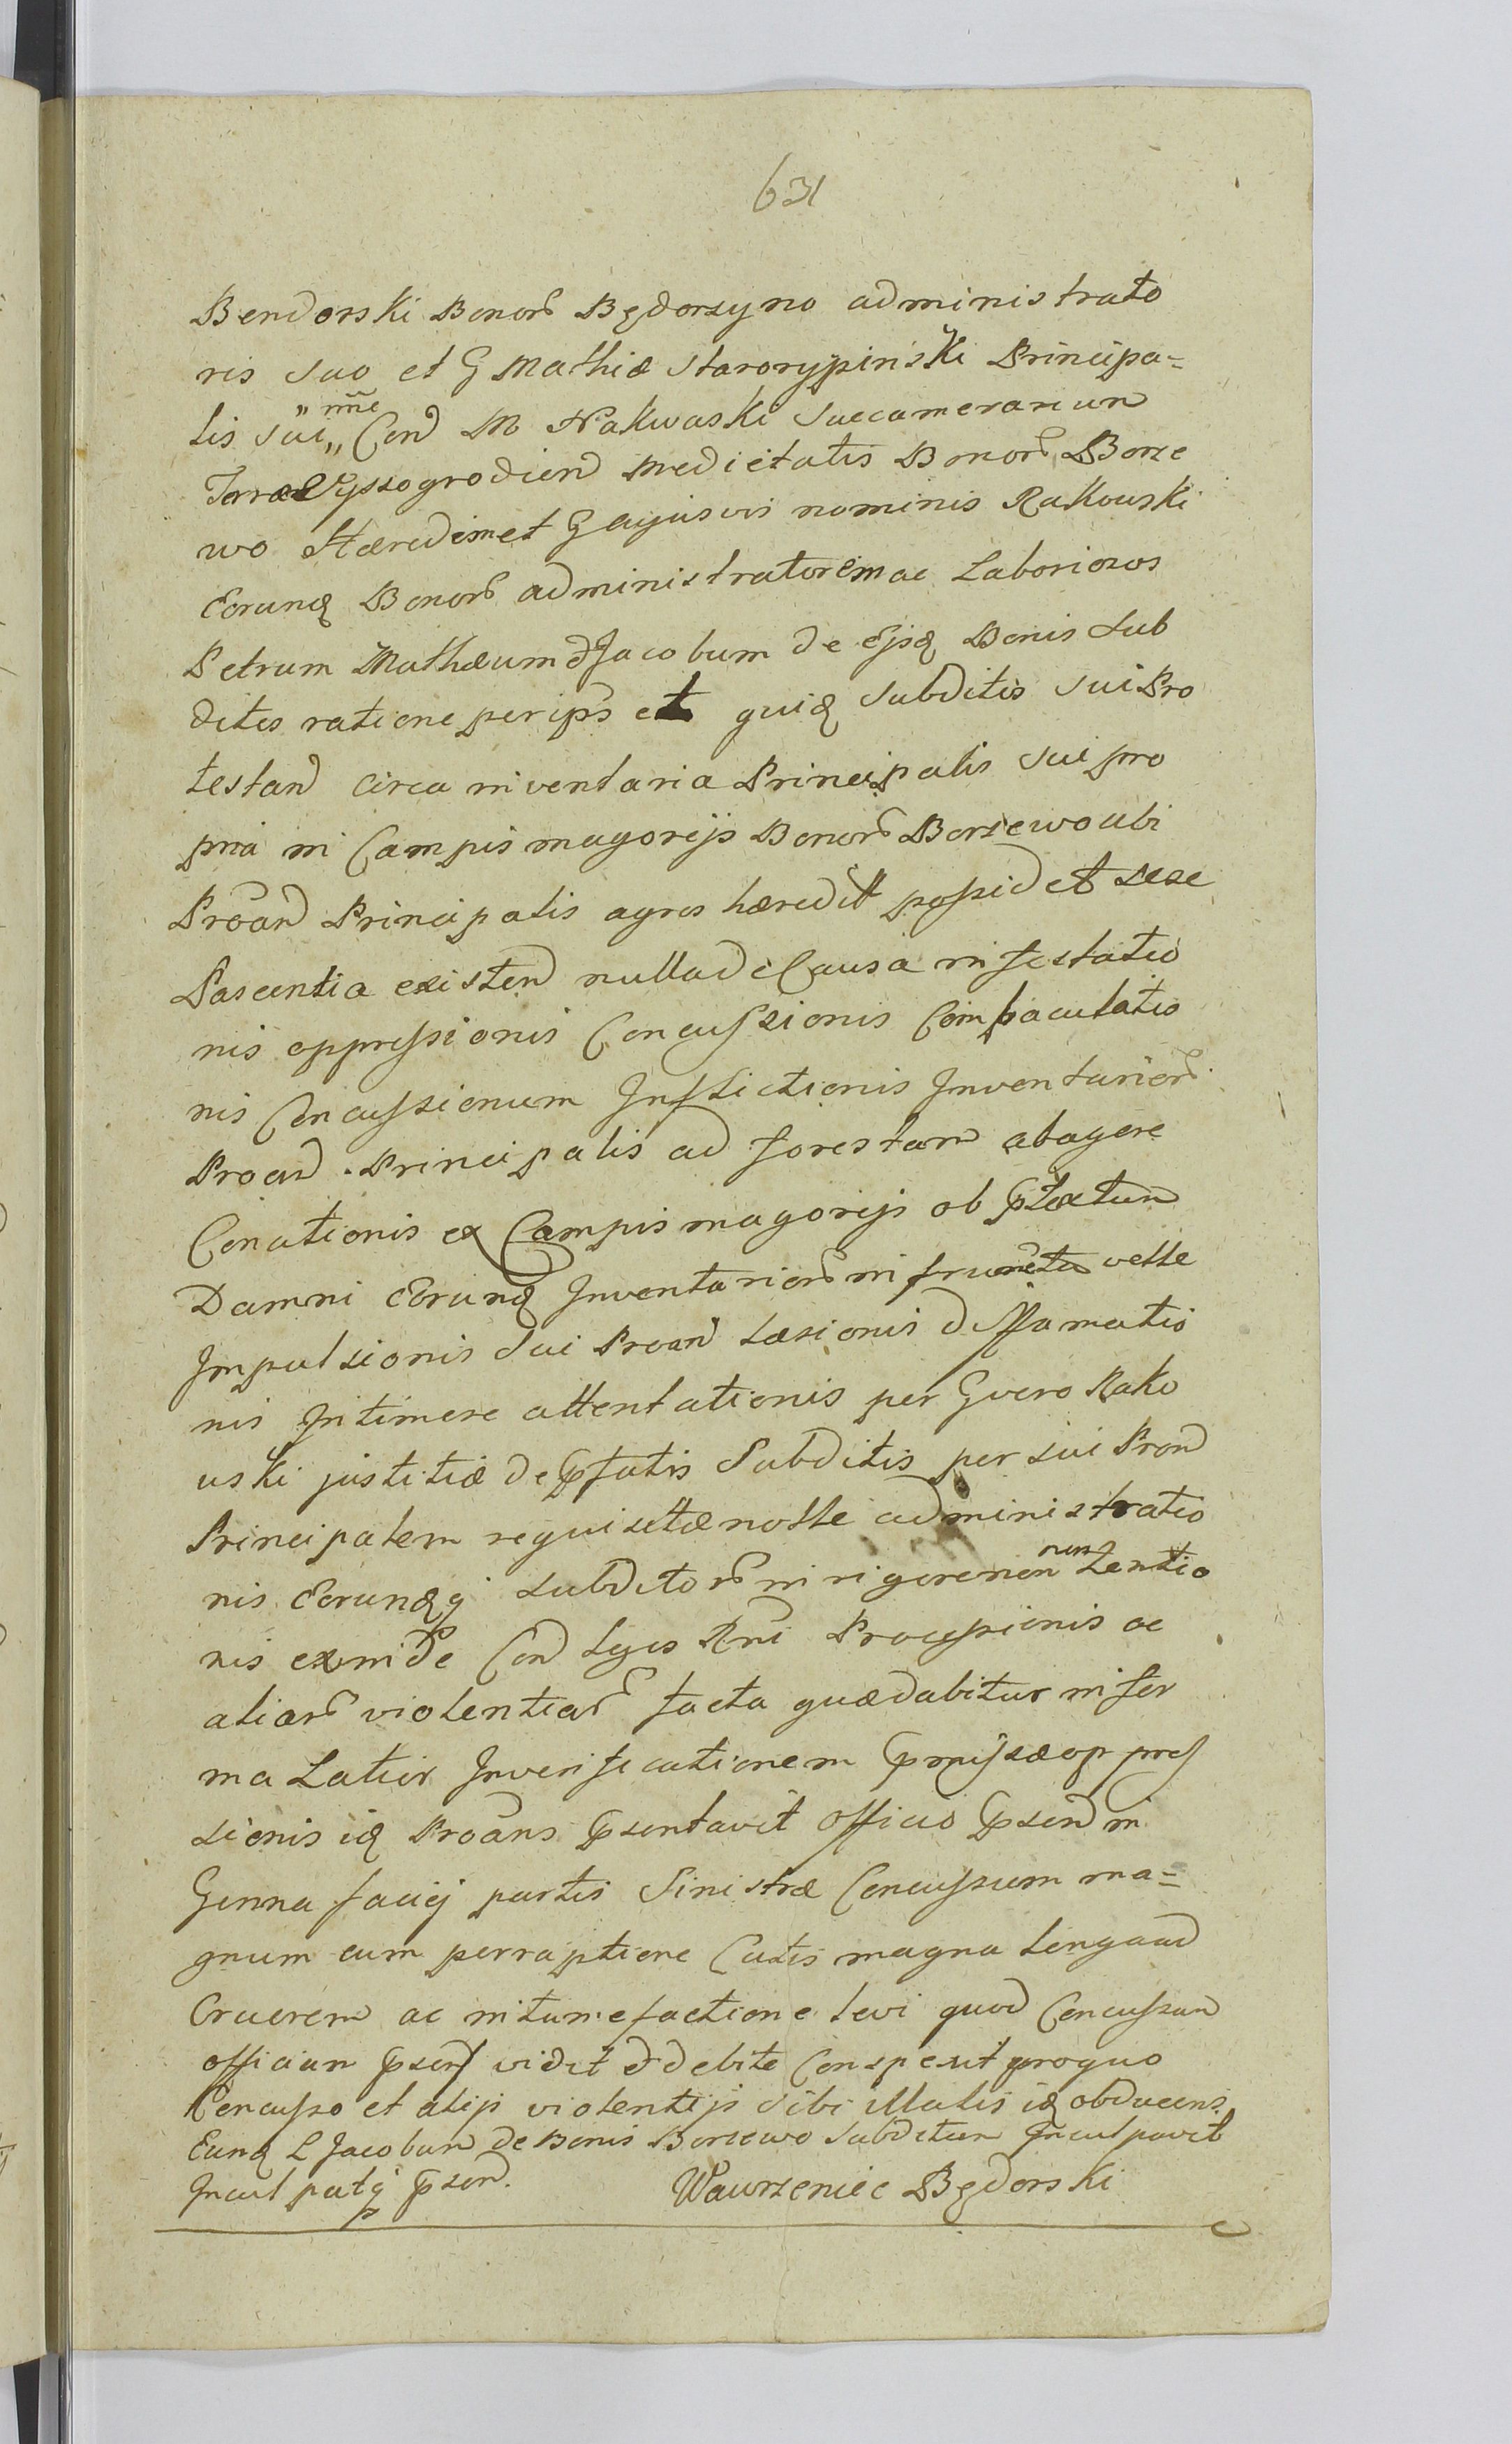 631
Bendorski Bonorũ Będorzyno administrato
ris suo et G Mathiæ Starorypinski Principa=
lis sui „nñe„ Con͠d M Nakwaski Succamerariun͠
Terræ Wyssogrodien͠ Medietatis Bonorũ Borze
wo Hæredem et G cujusvis nominis Rakowski
Eorund͠ Bonorũ administratorem ac Laboriosos
Petrum Mathæum & Jacobum de Ejsd͠ Bonis Sub
ditos ratione per ip͠s et quid͠ subditis sui Pro
testan͠ circa inventaria Principalis sui pro
pria in Campis magorijs Bonorũ Borzewo ubi
Proãn͠ Principalis agros hæredit͠t possidet sese
Pascentia existen͠ nulla de Causa infestatio
nis oppressionis Concussionis Compaculatio
nis Concussionum Inflictionis Inventariorũ
Proan͠ Principalis ad forestam abagere
Conationis ex Campis magorijs ob p̃textum
Damni Eorund͠ Inventariorũ in frumẽto velle
Impulsionis Sui Proan͠ Læsionis diffamatio
nis Intimere attentationis per G vero Rako
wski justitiæ de p̃fatis Subditis per sui Pron͠
Principalem requisitæ nolle administratio
nis Eorundq̃ subditorũ in rigorem non nun Zentio
nis exinde Con͠ Leges Rñi Processionis ac
aliarũ violentiarũ facta quæ dabitur in for
ma Latior Inverificationem p̃missæ oppres
sionis id͠ Proãns p̃sentavit Officio p̃sen͠ in
Genna faciej partis Sinistræ Concussum ma=
gnum cum perraptione Cutis magna longa ad
Cruorem ac intumefactione levi quod Concussum
officium p̃sen͠s vidit & debite Conspexit pro quo
Concusso et alijs violentijs sibi illatis id͠ obducens
Eund͠ L Jacobum de Bonis Borzewo Subditum Inculpavit
Inculpatq̃ p̃sen͠. Wawrzeniec Będorski